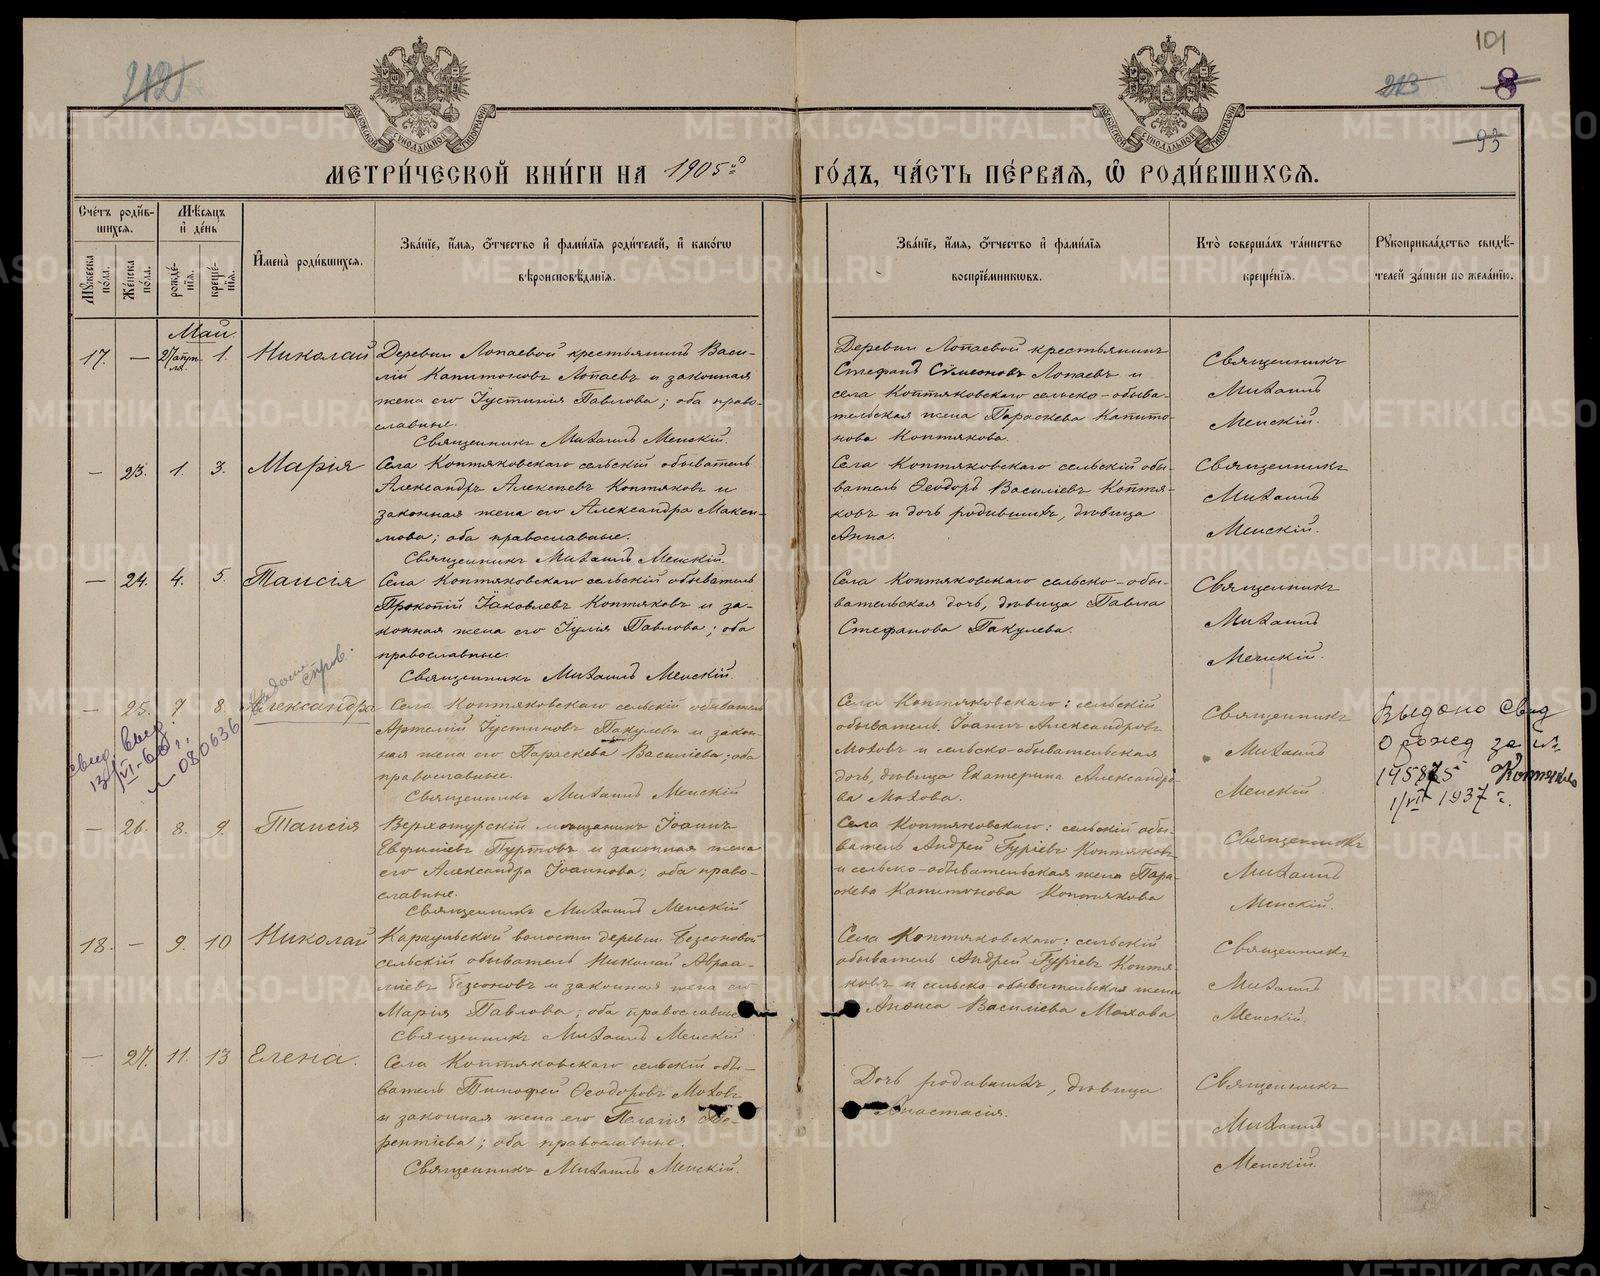 101
212
213
8
93
МОСКОВСКОЙ СѴНОДАЛЬНОЙ ТИПОГРАФІИ
МОСКОВСКОЙ СѴНОДАЛЬНОЙ ТИПОГРАФІИ
МЕТРИ́ЧЕСКОЙ КНИ́ГИ НА 1905й ГО́ДЪ, ЧА́СТЬ ПЕ́РВАЯ, Ѽ РОДИ́ВШИХСЯ.
Сче́тъ роди́в-
шихся.
Мѣ́сяцъ
и҆ де́нь
Мꙋ́жеска по́ла.
Же́нска по́ла.
рожде́-
нїя.
креще́-
нїя.
И҆мена̀ роди́вшихся.
Зва́нїе, и҆́мя, ѻ҆́тчество и҆ фами́лїя роди́телей, и҆ како́гѡ
вѣроисповѣ́данїя.
Зва́нїе, и҆́мя, ѻ҆́тчество и҆ фами́лїя
воспрїе́мниковъ.
Кто̀ соверша́лъ та́инство
креще́нїя.
Рꙋкоприкла́дство свидѣ́-
телей за́писи по жела́нїю.
Май.
17. — 27 апрѣ-
ля. 1. Николай
Деревни Лопаевой крестьянинъ Васи-
лій Капитоновъ Лопаевъ и законная
жена его Іустинія Павлова; оба право-
славные.
Священникъ Михаилъ Менскій.
Деревни Лопаевой крестьянинъ
Стефанъ Сѵмеоновъ Лопаевъ и
села Коптяковскаго сельско-обыва-
тельская жена Параскева Капито-
нова Коптякова.
Священникъ
Михаилъ
Менскій.
— 23. 1. 3. Марія
Села Коптяковскаго сельскій обыватель
Александръ Алексѣевъ Коптяковъ и
законная жена его Александра Макси-
мова; оба православные.
Священникъ Михаилъ Менскій.
Села Коптяковскаго сельскій обы-
ватель Ѳеодоръ Василіевъ Коптя-
ковъ и дочь родившихъ, дѣвица
Анна.
Священникъ
Михаилъ
Менскій.
— 24. 4. 5. Таисія
Села Коптяковскаго сельскій обыватель
Прокопій Іаковлевъ Коптяковъ и за-
конная жена его Іулія Павлова; оба
православные.
Священникъ Михаилъ Менскій.
Села Коптяковскаго сельско-обы-
вательская дочь, дѣвица Павла
Стефанова Пакулева.
Священникъ
Михаилъ
Менскій.
справ.
— 25. 7 8. Александра
свид. выд.
13/VI-60 г.
№ 080636
Села Коптяковскаго сельскій обыватель
Артемій Іустиновъ Пакулевъ и закон-
ная жена его Параскева Василіева; оба
православные.
Священникъ Михаилъ Менскій
Села Коптяковскаго: сельскій
обыватель Іоаннъ Александровъ
Моховъ и сельско-обывательская
дочь, дѣвица Екатерина Александро-
ва Мохова.
Священникъ
Михаилъ
Менскій.
Выдано свид
о рожд за №
195875
1/VII 1937 г.
— 26. 8. 9. Таисія
Верхотурскій мѣщанинъ Іоаннъ
Евфиміевъ Пуртовъ и законная жена
его Александра Іоаннова; оба право-
славные.
Священникъ Михаилъ Менскій
Села Коптяковскаго: сельскій обы-
ватель Андрей Гуріевъ Коптяковъ
и сельско-обывательская жена Пара-
скева Капитонова Коптякова
Священникъ
Михаилъ
Менскій.
18. — 9. 10 Николай
Караульской волости деревни Безсоновой
сельскій обыватель Николай Авраа-
міевъ Безсоновъ и законная жена его
Марія Павлова; оба православные
Священникъ Михаилъ Менскій
Села Коптяковскаго: сельскій
обыватель Андрей Гуріевъ Коптя-
ковъ и сельско-обывательская жена
Анѳиса Василіева Мохова
Священникъ
Михаилъ
Менскій.
— 27. 11. 13 Елена.
Села Коптяковскаго сельскій обы-
ватель Тимофей Ѳеодоровъ Моховъ
и законная жена его Пелагія Те-
рентіева; оба православные.
Священникъ Михаилъ Менскій.
Дочь родившихъ, дѣвица
Анастасія.
Священникъ
Михаилъ
Менскій.
METRIKI.GASO-URAL.RU